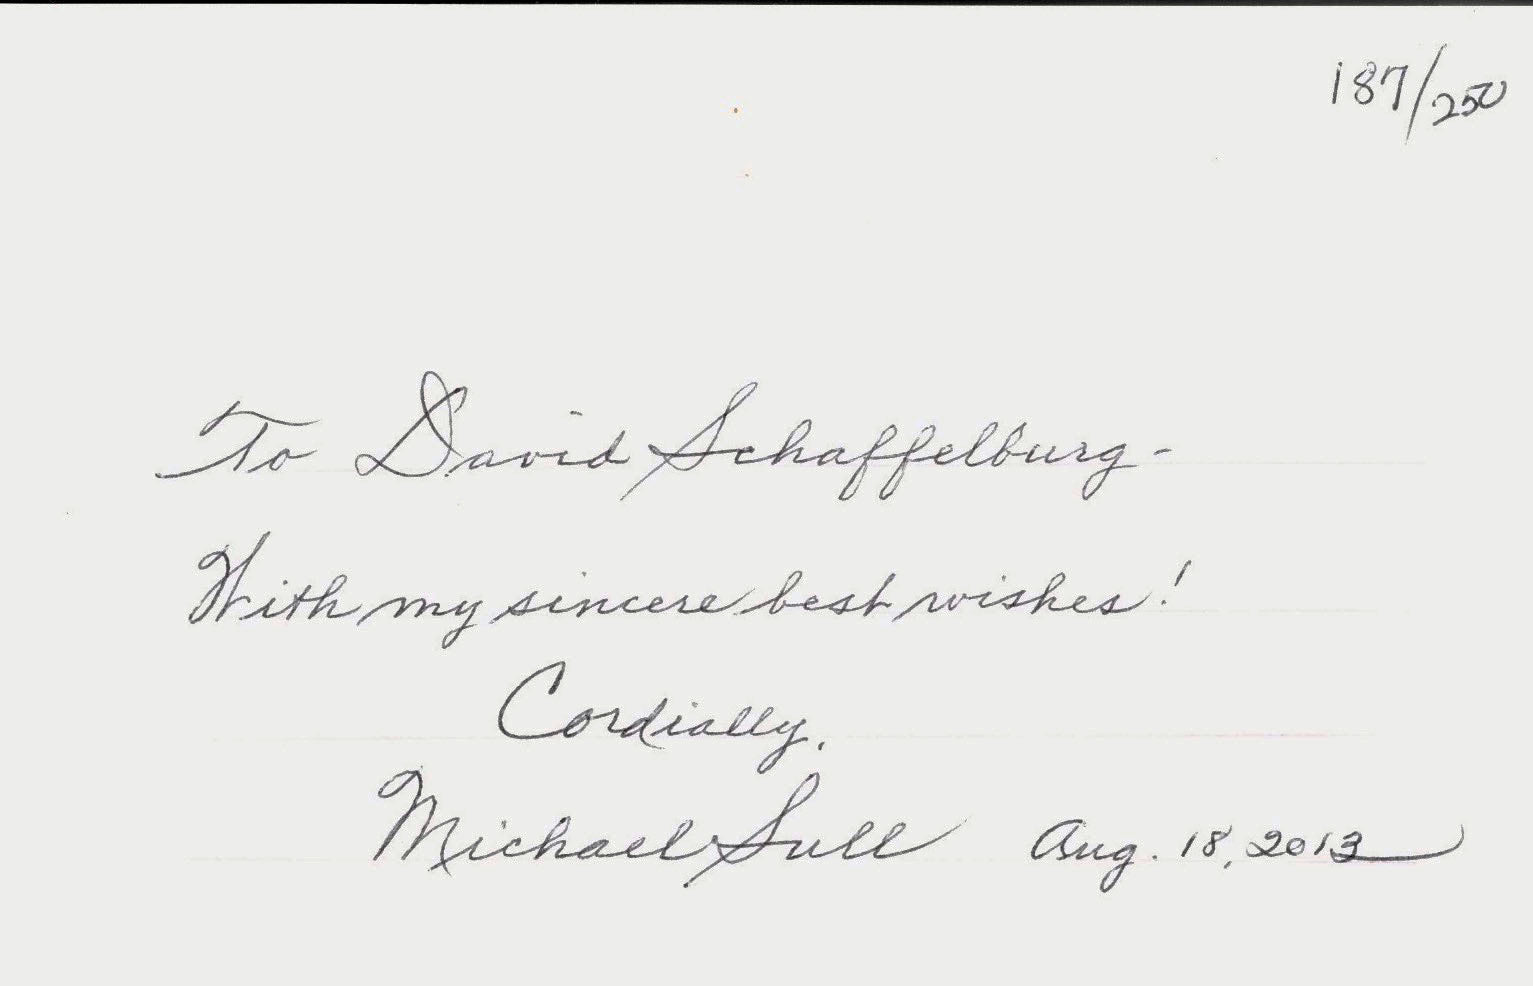 187/250
To David Schaffelburg-
With my sincere best wishes!
Cordially,
Michael Sull Aug. 18, 2013